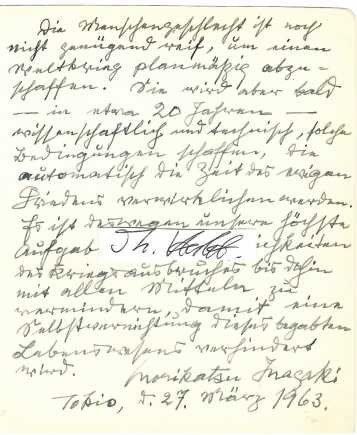 Die Menschengeschlecht ist noch
nicht genügend reif, um einen
Weltkrieg planmäßig abzu-
schaffen. Sie wird aber bald
— in etwa 20 Jahren —
wissenschaftlich und technisch, solche
Bedingungen schaffen, die
automatisch die Zeit des ewigen
Friedens verwirklichen werden.
Es ist deswegen unsere höchste
Aufgab Th. ichkeiten
des Kriegsausbruches bis dahin
mit allen Mitteln zu
vermindern, damit eine
Selbstvernichtung dieses begabten
Lebenswesens verhindert
wird. Morikatsu Inagaki
Tokio, d. 27. März 1963.